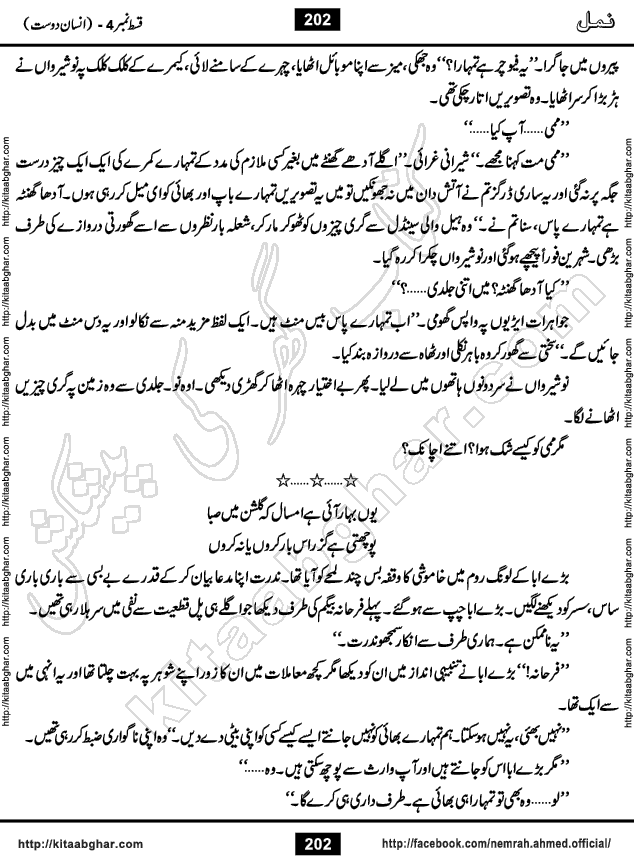 نمل
202
قسط نمبر 4 - (انسان دوست)
پیروں میں جا گرا۔ ”یہ فیوچر ہے تمہارا؟“ وہ جھکی، میز سے اپنا موبائل اٹھایا، چہرے کے سامنے لائی، کیمرے کے کلک کلک پہ نوشیرواں نے
ہڑبڑا کر سر اٹھایا۔ وہ تصویریں اتار چکی تھی۔
”ممی...... آپ کیا......“
”ممی مت کہنا مجھے۔“ شیرانی غرائی۔ ”اگلے آدھے گھنٹے میں بغیر کسی ملازم کی مدد کے تمہارے کمرے کی ایک ایک چیز درست
جگہ پر نہ گئی اور یہ ساری ڈرگز تم نے آتش دان میں نہ جھونکیں تو میں یہ تصویریں تمہارے باپ اور بھائی کو ای میل کر رہی ہوں۔ آدھا گھنٹہ
ہے تمہارے پاس، سنا تم نے۔“ وہ ہیل والی سینڈل سے گری چیزوں کو ٹھوکر مار کر، شعلہ بار نظروں سے اسے گھورتی دروازے کی طرف
بڑھی۔ شہرین فوراً پیچھے ہو گئی اور نوشیرواں چکرا کر رہ گیا۔
”کیا آدھا گھنٹہ؟ میں اتنی جلدی......؟“
جواہرات ایڑیوں پہ واپس گھومی۔ ”اب تمہارے پاس بیس منٹ ہیں۔ ایک لفظ مزید منہ سے نکالو اور یہ دس منٹ میں بدل
جائیں گے۔“ سختی سے گھور کر وہ باہر نکلی اور ٹھاہ سے دروازہ بند کیا۔
نوشیرواں نے سر دونوں ہاتھوں میں لے لیا۔ پھر بے اختیار چہرہ اٹھا کر گھڑی دیکھی۔ اوہ نو۔ جلدی سے وہ زمین پہ گری چیزیں
اٹھانے لگا۔
مگر ممی کو کیسے شک ہوا؟ اتنے اچانک؟
☆......☆......☆
یوں بہار آئی ہے امسال کہ گلشن میں صبا
پوچھتی ہے گزر اس بار کروں یا نہ کروں
بڑے ابا کے لونگ روم میں خاموشی کا وقفہ بس چند لمحے کو آیا تھا۔ ندرت اپنا مدعا بیان کر کے قدرے بے بسی سے باری باری
ساس، سسر کو دیکھنے لگیں۔ بڑے ابا چپ سے ہو گئے۔ پہلے فرحانہ بیگم کی طرف دیکھا جو اگلے ہی پل قطعیت سے نفی میں سر ہلا رہی تھیں۔
”یہ ناممکن ہے۔ ہماری طرف سے انکار سمجھو ندرت۔“
”فرحانہ!“ بڑے ابا نے تنبیہی انداز میں ان کو دیکھا مگر کچھ معاملات میں ان کا زور اپنے شوہر پہ بہت چلتا تھا اور یہ انہی میں
سے ایک تھا۔
”نہیں بھئی، یہ نہیں ہو سکتا۔ ہم تمہارے بھائی کو نہیں جانتے ایسے کیسے کسی کو اپنی بیٹی دے دیں۔“ وہ اپنی ناگواری ضبط کر رہی تھیں۔
”مگر بڑے ابا اس کو جانتے ہیں اور آپ وارث سے پوچھ سکتی ہیں۔ وہ......“
”لو...... وہ بھی تو تمہارا ہی بھائی ہے۔ طرف داری ہی کرے گا۔“
http://kitaabghar.com
202
http://facebook.com/nemrah.ahmed.official/
http://kitaabghar.com
http://kitaabghar.com
http://kitaabghar.com
http://kitaabghar.com
http://kitaabghar.com
http://kitaabghar.com
http://kitaabghar.com
http://kitaabghar.com
http://kitaabghar.com
http://kitaabghar.com
http://kitaabghar.com
http://kitaabghar.com
کتاب گھر کی پیشکش
kitaabghar.com